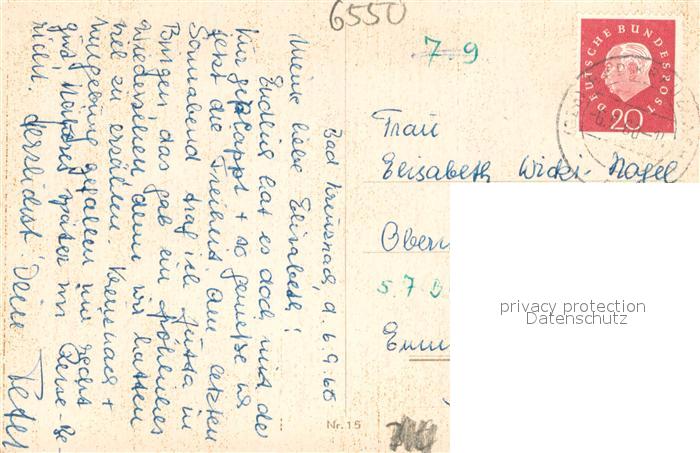 6550
7.9
DEUTSCHE BUNDESPOST
20
Bad Kreuznach, d. 6.9.60
Meine liebe Elisabeth!
Endlich hat es doch mit der
Kur geklappt + so genieße ich
jetzt die Freiheit. Am letzten
Sonnabend traf ich Jutta in
Bingen das gab ein fröhliches
Wiedersehen denn wir hatten
viel zu erzählen. Kreuznach +
Umgebung gefallen mir recht
gut. Näheres später im Reise-Be-
richt. Herzlichst! Deine
Frau
Elisabeth Wicki-Nagel
Obern
5.7
Nr. 15
privacy protection
Datenschutz